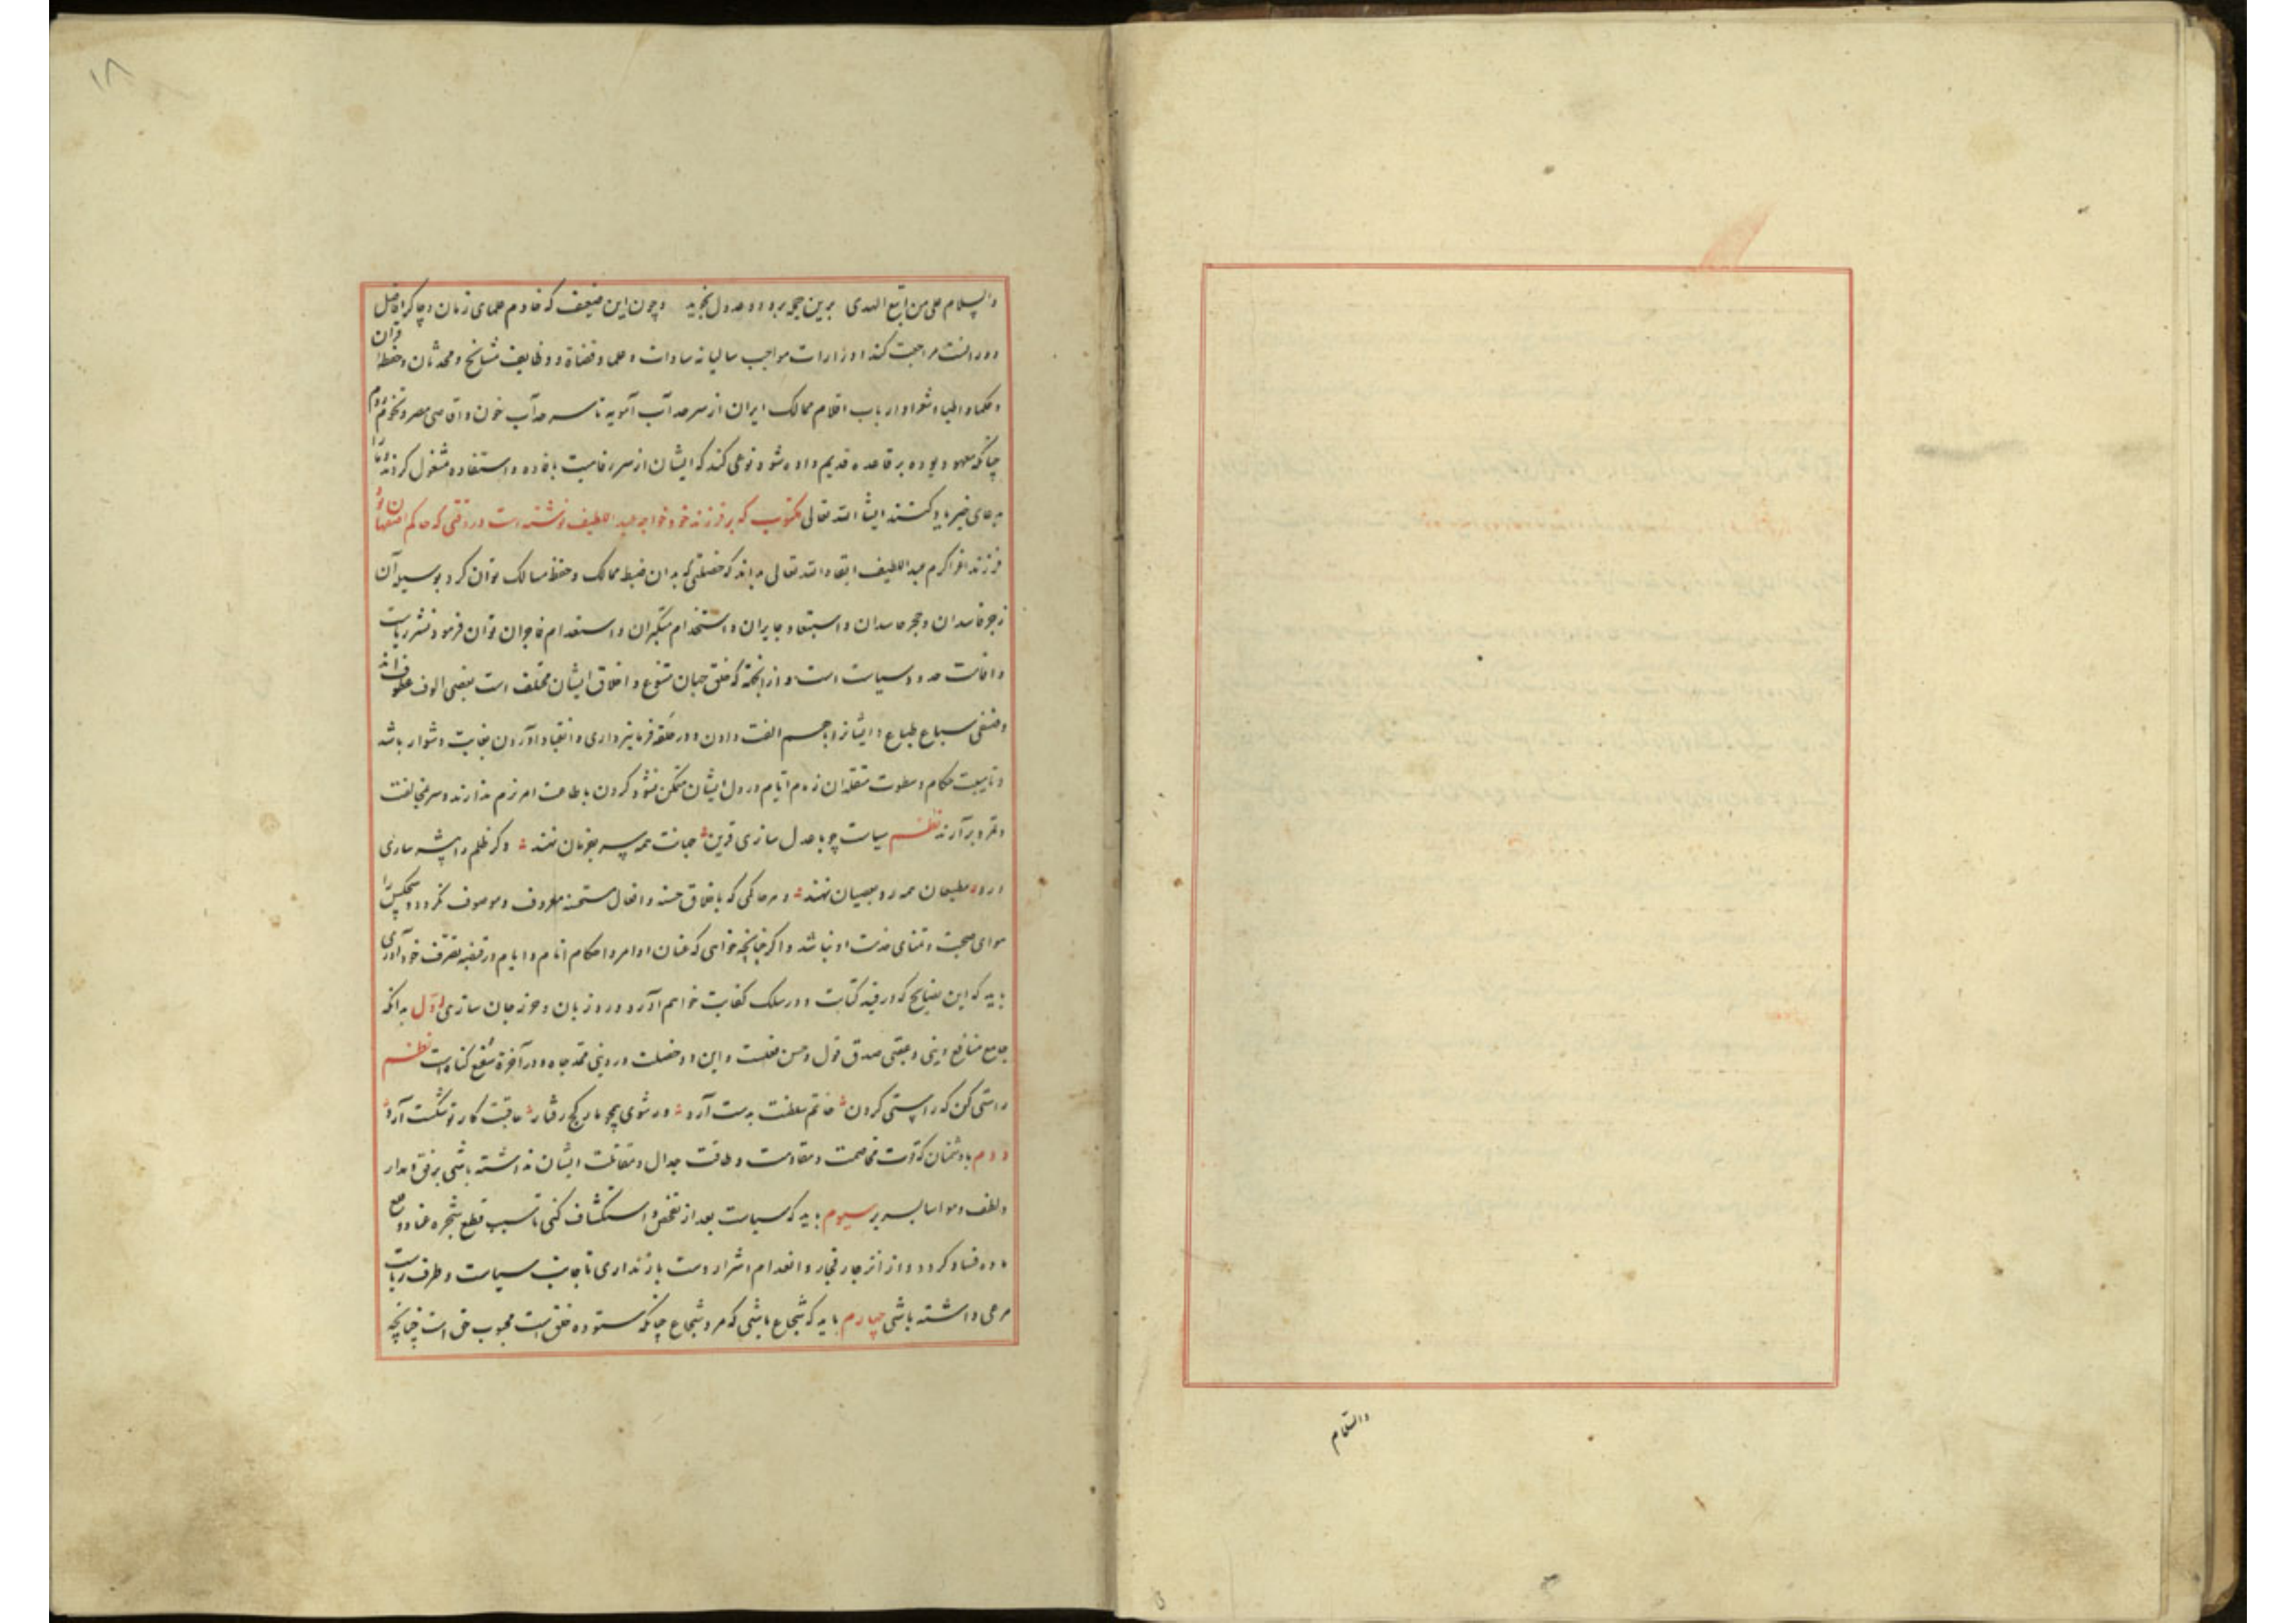 والسلام علی من اتبع الهدی برین جمله برود و عدول نجوید و چون این ضعیف که خادم علمای زمان و چاکر افاضل
دوران است مراجعت کند ادرارات مواجب سالیانه سادات و علما و قضاة و وظایف مشایخ و محدثان و حفظه قرآن
و حکما و اطبا و شعرا و ارباب اقلام ممالک ایران از سرحد آب آمویه تا سرحد آب خون و اقاصی مصر و تخوم روم
چنانکه معهود بوده بر قاعده قدیم داده شود نوعی کند که ایشان از سر رفاهیت بافاده و استفاده مشغول کردند و ما را
بدعای خیر یاد کنند انشا الله تعالی مکتوب که بر فرزند خود خواجه عبد اللطیف نوشته است در وقتی که حاکم اصفهان بود
فرزند اعز اکرم عبد اللطیف ابقاه الله تعالی بداند که خصلتی که بدان ضبط ممالک و حفظ مسالک توان کرد و بوسیله آن
زجر فاسدان و حجر حاسدان و استبعاد جایران و استخدام متکبران و استعدام فاجران توان فرمود نشر ریاست
و اقامت حدود سیاست است و از آنجهة که خلق جهان متنوع و اخلاق ایشان مختلف است بعضی الوف عطوف اند
و صنفی سباع طباع و ایشانرا با هم الفت دادن و در حلقه فرمانبرداری و انقیاد آوردن بغایت دشوار باشد
و تا هیبت حکام و سطوت متقلدان زمام ایام در دل ایشان متمکن نشود کردن باطاعت امر نرم ندارند و سر مخالفت
و تمرد برآرند نظم سیاست چو با عدل سازی قرین جهانت همه سر بفرمان نهند و کر ظلم را پیشه سازی
درو مطیعان همه رو بعصیان نهند و هر حاکمی که باخلاق حسنه و افعال مستحسنه معروف و موصوف نکردد هیچکس را
هوای صحبت و تمنای خدمت او نباشد و اکر چنانچه خواهی که عنان اوامر و احکام انام و ایام در قبضه تصرف خود آوری
باید که این نصایح که در قید کتابت و در سلک کفایت خواهم آورد ورد زبان و حرز جان سازی اول بدانکه
جامع منافع دینی و عقبی صدق قول و حسن فعلست و این دو خصلت در دنیی ممهد جاه و در آخرة شفیع کناه است نظم
راستی کن که راستی کردن خاتم سلطنت بدست آرد ور شوی همچو مار کج رفتار عاقبت کار تو شکست آرد
دوم با دشمنان که قوت مخاصمت و مقاومت و طاقت جدال و مقاتلت ایشان نداشته باشی برفق و مدارا
و لطف و مواسا بسر بر سیوم باید که سیاست بعد از تفحص و استکشاف کنی تا سبب قطع شجره عناد و قلع
ماده فساد کردد و از انزجار فجار و انعدام اشرار دست بازنداری تا جانب سیاست و طرف ریاست
مرعی داشته باشی چهارم باید که شجاع باشی که مرد شجاع چنانکه ستوده خلق است محبوب حق است چنانچه
والسلام
۱۸